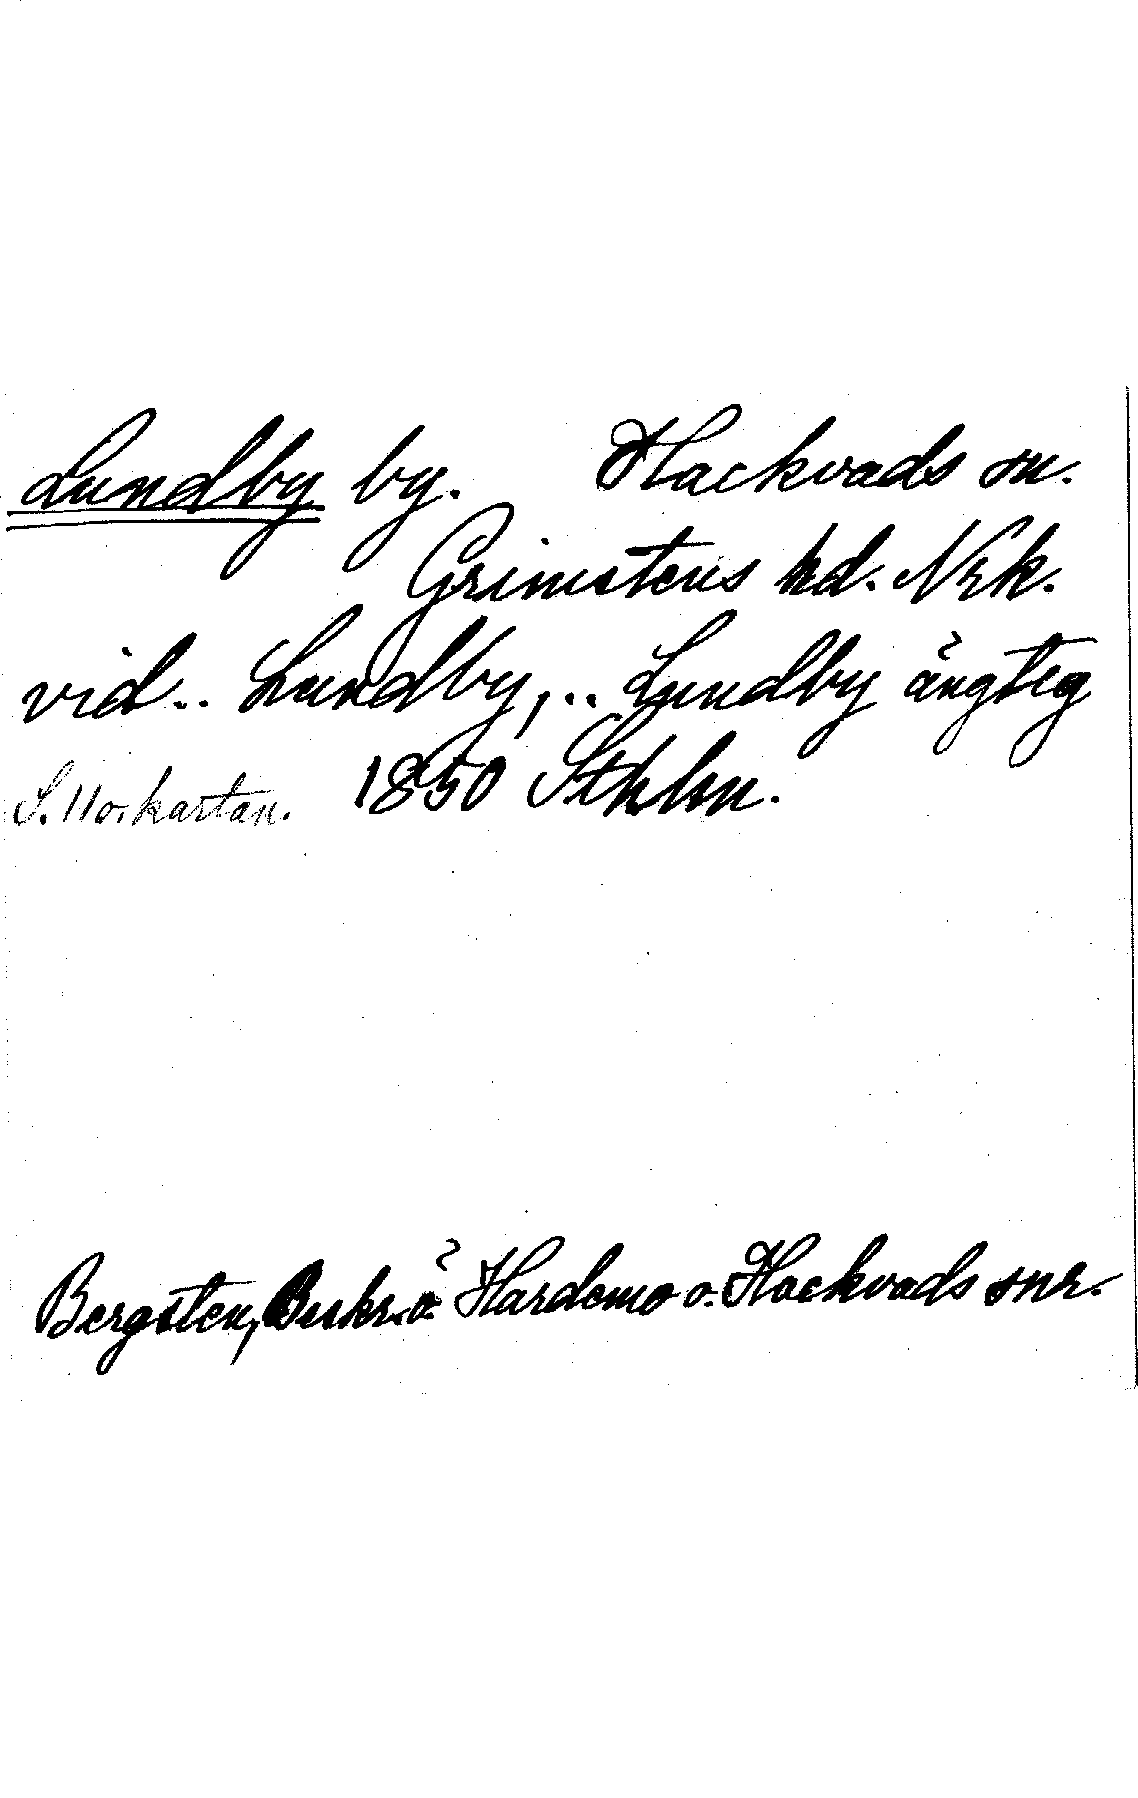 Lundby by. Hackvads sn.
Grimstens hd. Nrk.
vid.. Lundby,.. Lundby ängteg
S. 11 o. kartan. 1850 Sthlm.
Bergsten, Beskr. ö. Hardemo o. Hackvads snr.